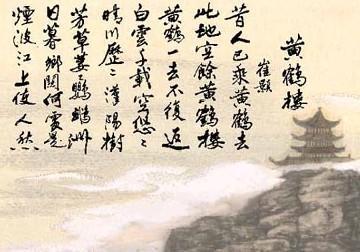 黃鶴樓
崔顥
昔人已乘黃鶴去
此地空餘黃鶴樓
黃鶴一去不復返
白雲千載空悠々
晴川歷々漢陽樹
芳草萋々鸚鵡洲
日暮鄉關何處是
煙波江上使人愁